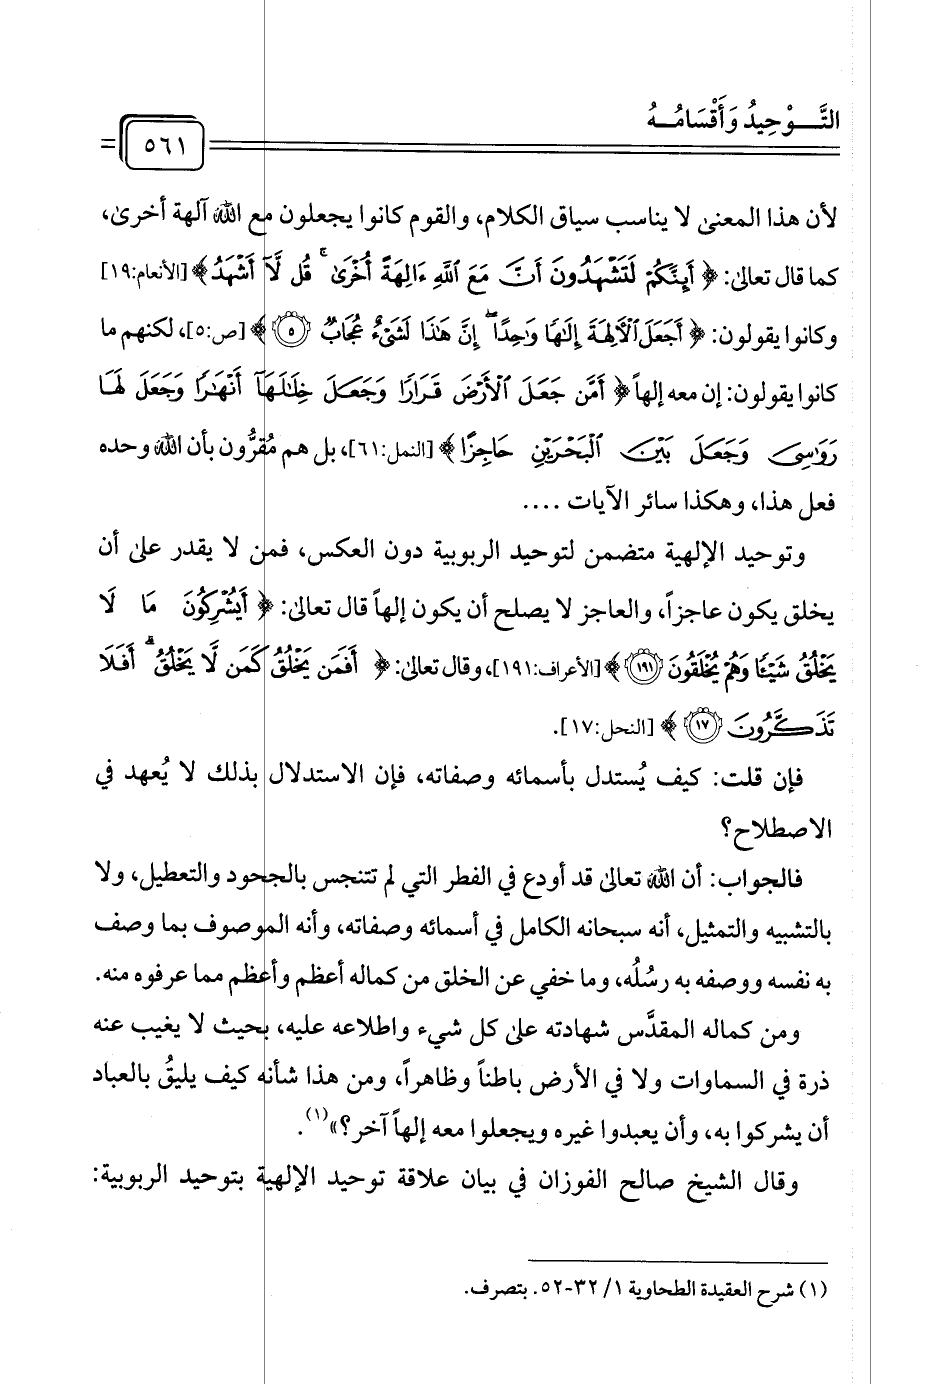 التَّـــوْحِيدُ وَأَقْسَامُـــهُ
٥٦١
لأن هذا المعنى لا يناسب سياق الكلام، والقوم كانوا يجعلون مع الله آلهة أخرى،
كما قال تعالى: ﴿ أَئِنَّكُمْ لَتَشْهَدُونَ أَنَّ مَعَ ٱللَّهِ ءَالِهَةً أُخْرَىٰ ۚ قُل لَّآ أَشْهَدُ ﴾ [الأنعام:١٩]
وكانوا يقولون: ﴿ أَجَعَلَ ٱلْـَٔالِهَةَ إِلَـٰهًا وَٰحِدًا ۖ إِنَّ هَـٰذَا لَشَىْءٌ عُجَابٌ ٥ ﴾ [ص:٥]، لكنهم ما
كانوا يقولون: إن معه إلهاً ﴿ أَمَّن جَعَلَ ٱلْأَرْضَ قَرَارًا وَجَعَلَ خِلَـٰلَهَآ أَنْهَـٰرًا وَجَعَلَ لَهَا
رَوَٰسِىَ وَجَعَلَ بَيْنَ ٱلْبَحْرَيْنِ حَاجِزًا ﴾ [النمل:٦١]، بل هم مُقرُّون بأن الله وحده
فعل هذا، وهكذا سائر الآيات ....
وتوحيد الإلهية متضمن لتوحيد الربوبية دون العكس، فمن لا يقدر على أن
يخلق يكون عاجزاً، والعاجز لا يصلح أن يكون إلهاً قال تعالى: ﴿ أَيُشْرِكُونَ مَا لَا
يَخْلُقُ شَيْـًٔا وَهُمْ يُخْلَقُونَ ١٩١ ﴾ [الأعراف:١٩١]، وقال تعالى: ﴿ أَفَمَن يَخْلُقُ كَمَن لَّا يَخْلُقُ ۗ أَفَلَا
تَذَكَّرُونَ ١٧ ﴾ [النحل:١٧].
فإن قلت: كيف يُستدل بأسمائه وصفاته، فإن الاستدلال بذلك لا يُعهد في
الاصطلاح؟
فالجواب: أن الله تعالى قد أودع في الفطر التي لم تتنجس بالجحود والتعطيل، ولا
بالتشبيه والتمثيل، أنه سبحانه الكامل في أسمائه وصفاته، وأنه الموصوف بما وصف
به نفسه ووصفه به رسُلُه، وما خفي عن الخلق من كماله أعظم وأعظم مما عرفوه منه.
ومن كماله المقدَّس شهادته على كل شيء واطلاعه عليه، بحيث لا يغيب عنه
ذرة في السماوات ولا في الأرض باطناً وظاهراً، ومن هذا شأنه كيف يليقُ بالعباد
أن يشركوا به، وأن يعبدوا غيره ويجعلوا معه إلهاً آخر؟»(١).
وقال الشيخ صالح الفوزان في بيان علاقة توحيد الإلهية بتوحيد الربوبية:
(١) شرح العقيدة الطحاوية ١/ ٣٢-٥٢. بتصرف.